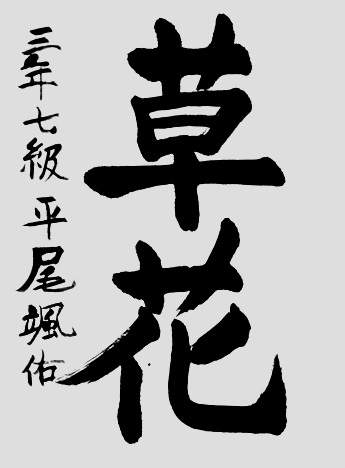 草花
三年七級 平尾颯佑